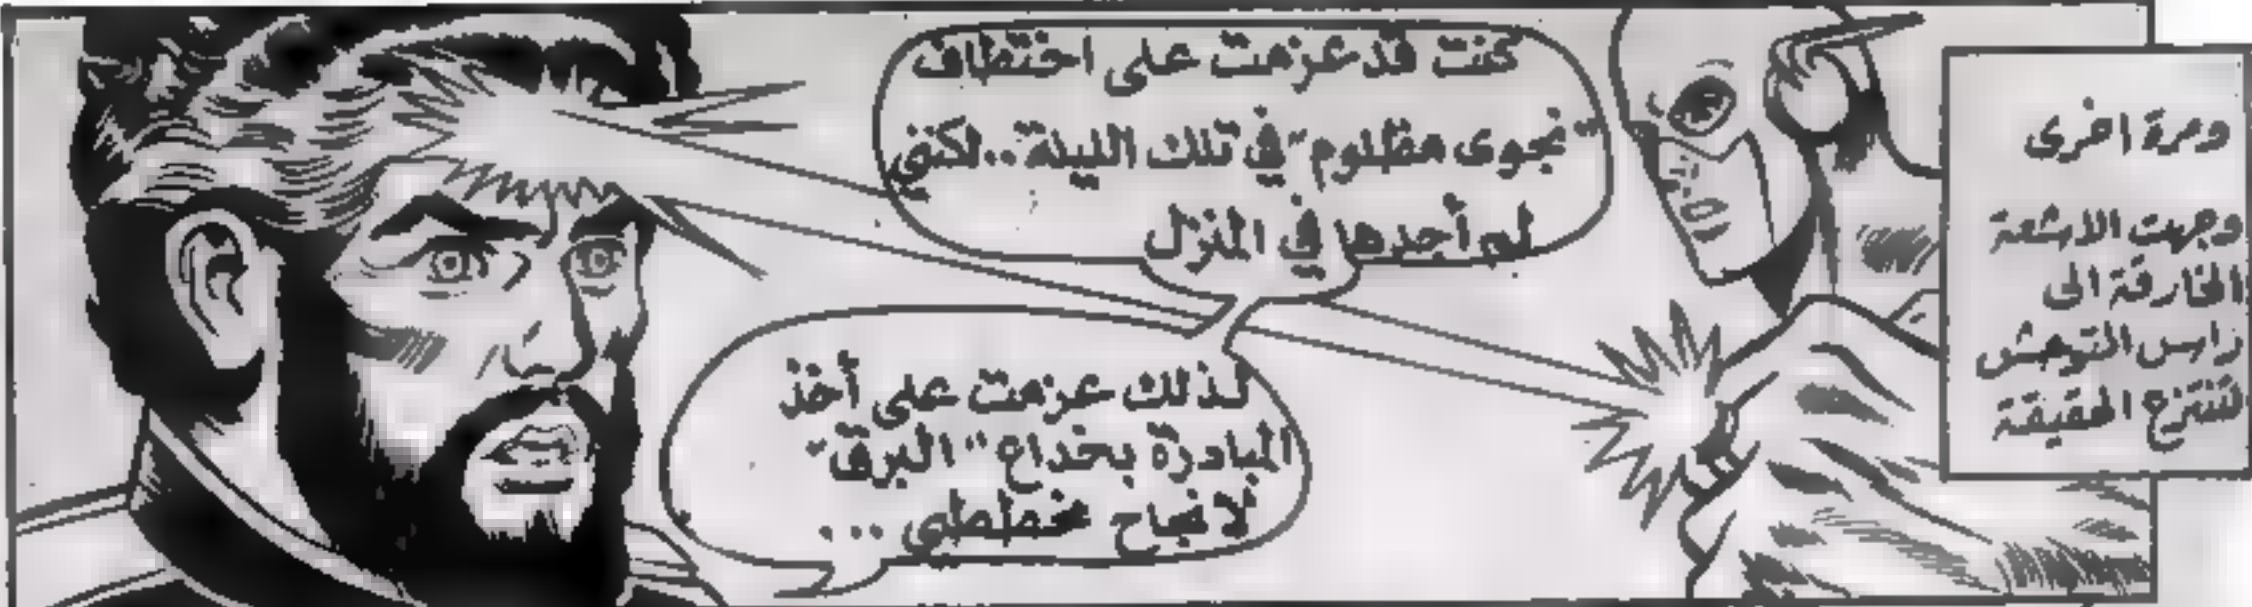 ومرة اخرى
وجهت الاشعة
الخارقة الى
راس المتوحش
لتنتزع الحقيقة
كنت قد عزمت على اختطاف
"نجوى مظلوم" في تلك الليلة.. لكنني
لم أجدها في المنزل
لذلك عزمت على أخذ
المبادرة بخداع "البرق"
لانجاح مخططي ...